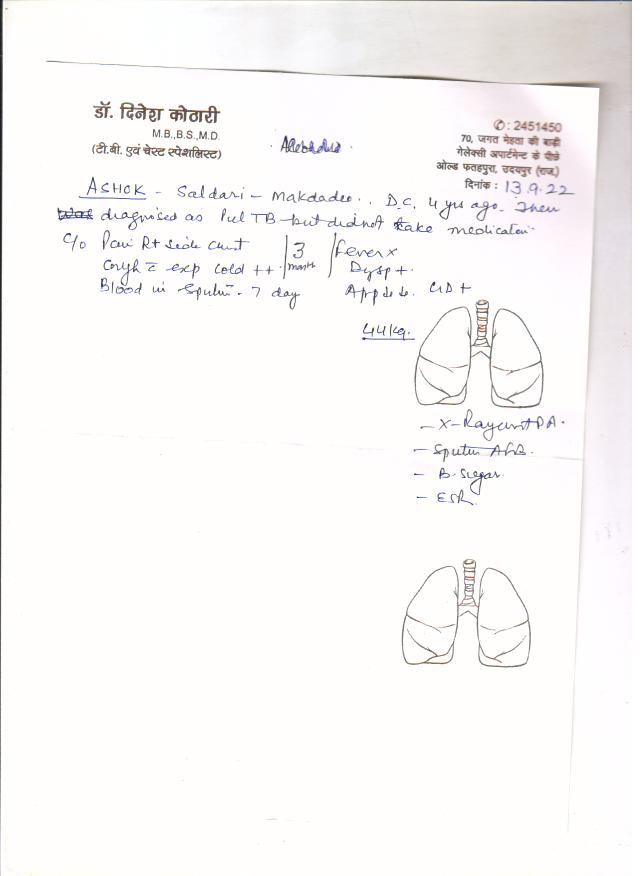 डॉ. दिनेश कोठारी
M.B.,B.S.,M.D.
(टी.बी. एवं चेस्ट स्पेशलिस्ट)
✆ : 2451450
70, जगत मेहता की बाड़ी
गेलेक्सी अपार्टमेन्ट के पीछे
ओल्ड फतहपुरा, उदयपुर (राज.)
दिनांक : 13.9.22
ASHOK - Saldari - Makdadeo.. D.C. 4 yrs ago. Then
diagnosed as Pul TB - but did not take medication.
C/o Pain Rt side 3 Fever x
c exp cold ++ month Dysp +.
Blood in Sputum - 7 day
44 kg.
- X-Ray PA.
- Sputum AFB.
- B. Sugar
- ESR